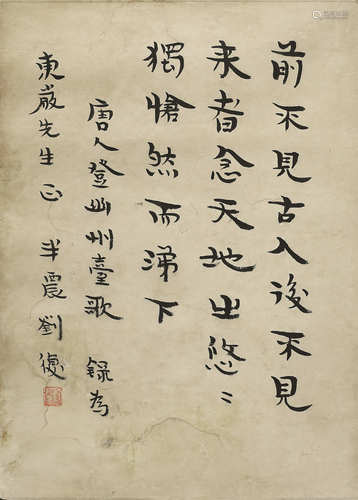 前不見古人後不見
来者念天地之悠〻
獨愴然而涕下
唐人登幽州臺歌 錄為
東巖先生正 半農劉復